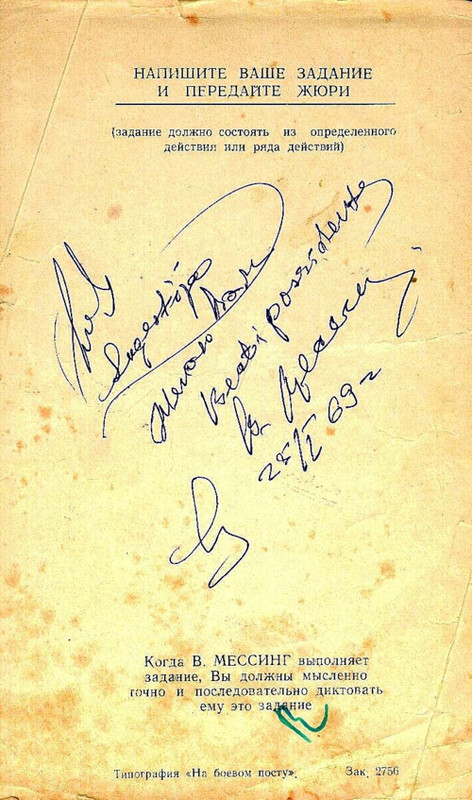 НАПИШИТЕ ВАШЕ ЗАДАНИЕ
И ПЕРЕДАЙТЕ ЖЮРИ
(задание должно состоять из определенного
действия или ряда действий)
Желаю Вам
В. Мессинг
69 г
Когда В. МЕССИНГ выполняет
задание, Вы должны мысленно
точно и последовательно диктовать
ему это задание
Типография «На боевом посту». Зак. 2756